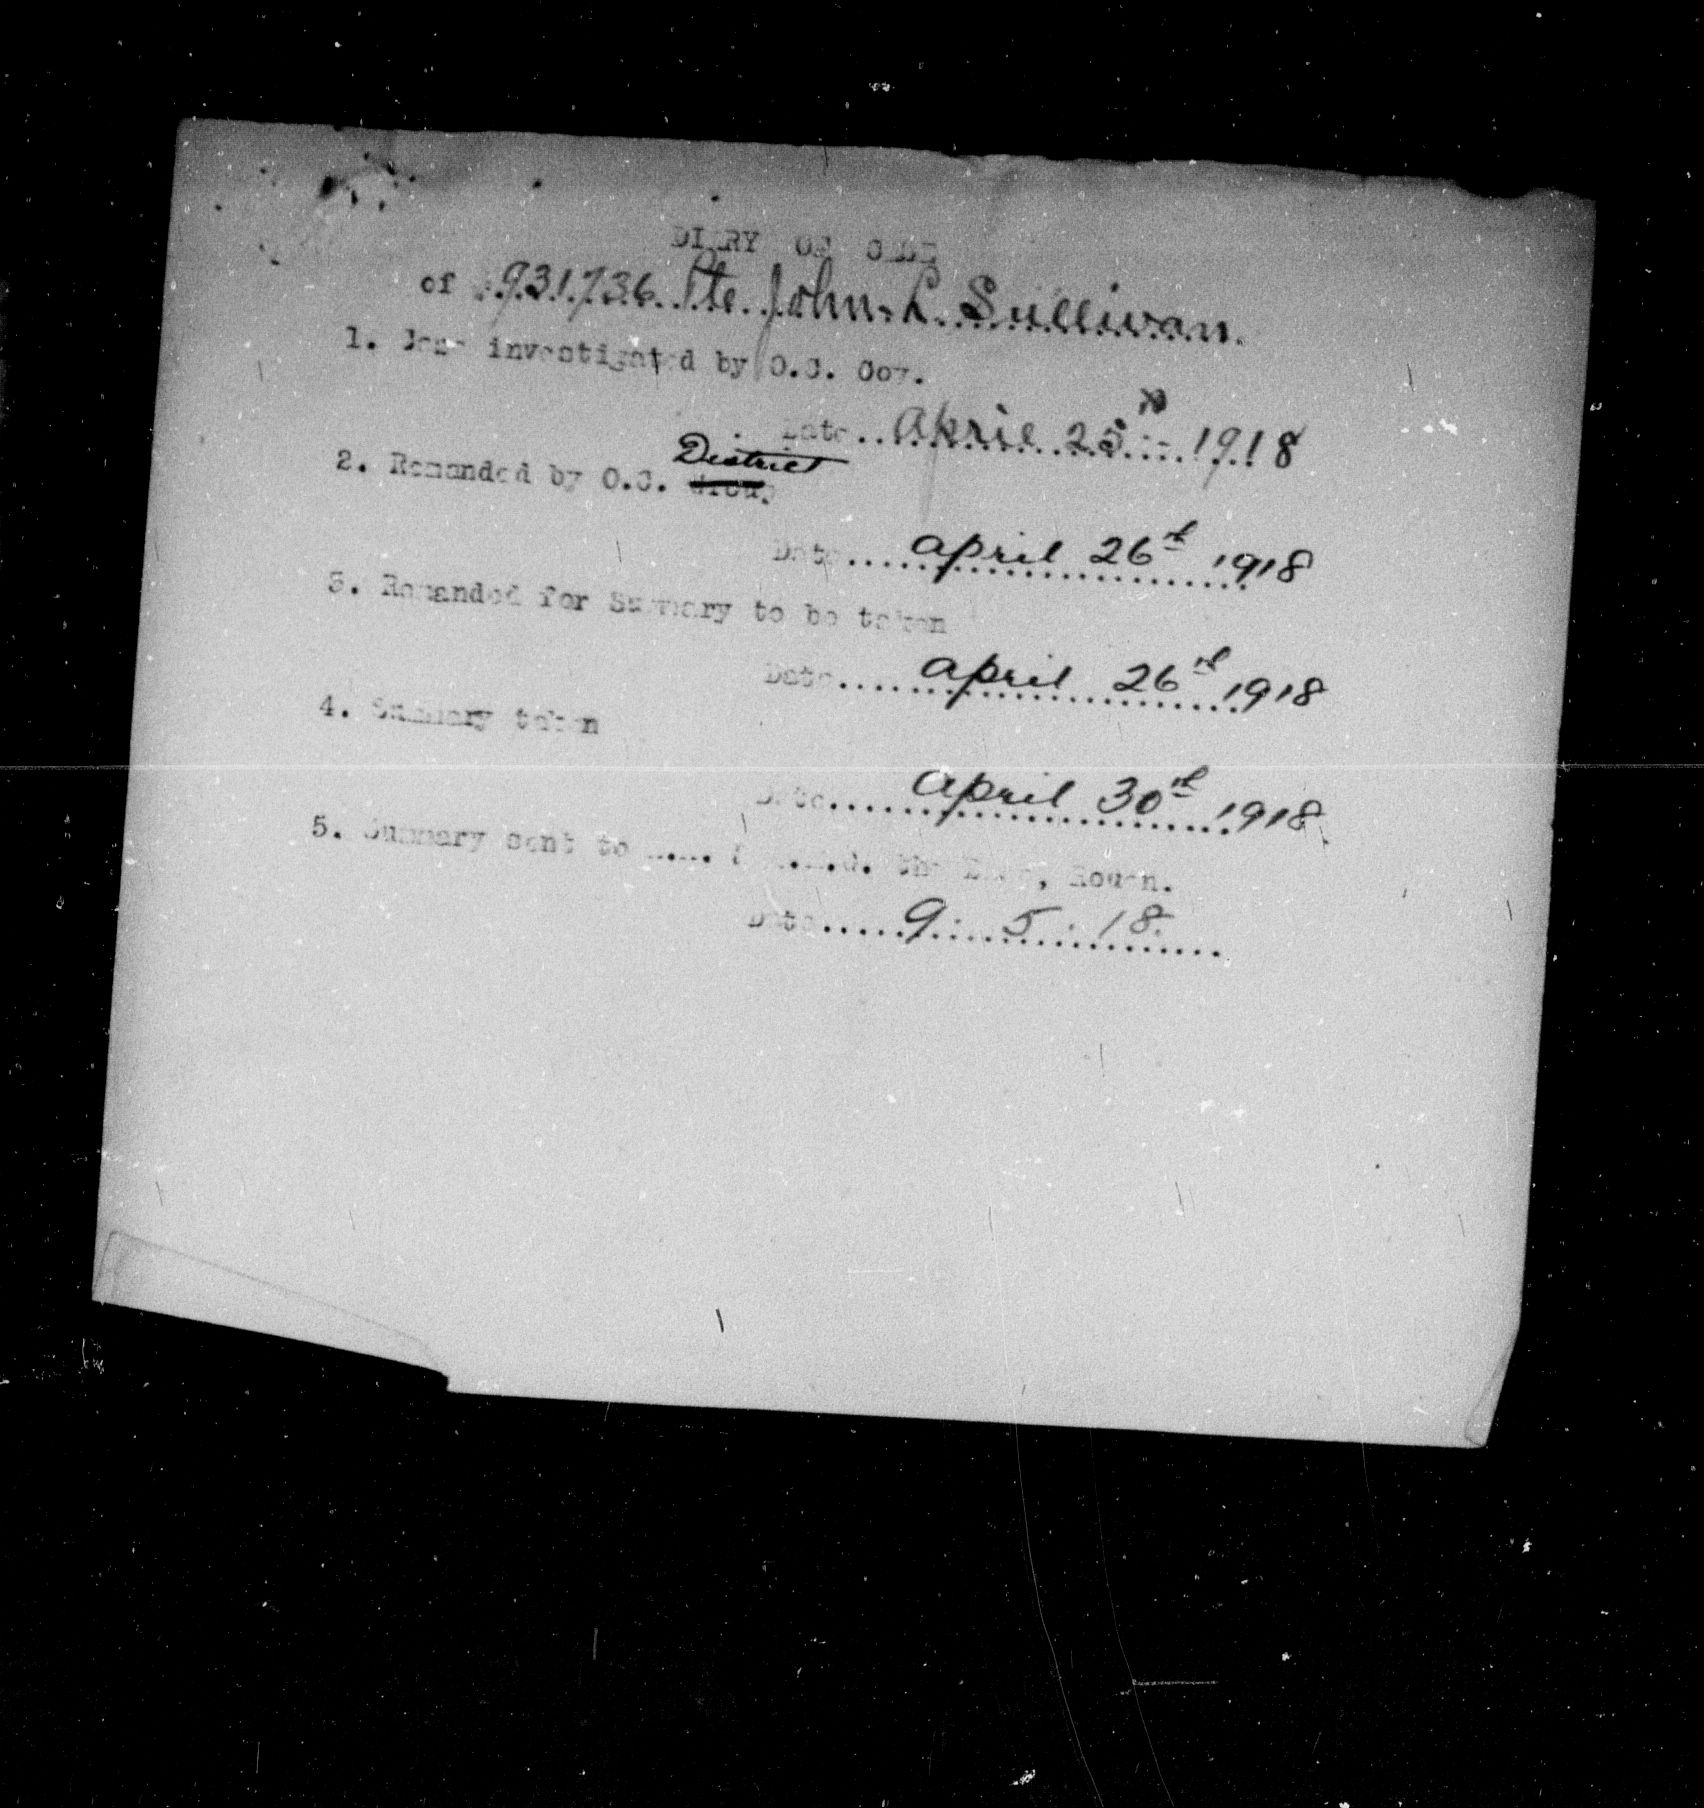 DIARY OF CASE
of 931736 Pte. John L. Sullivan.
1. Case investigated by O.C. Coy.
Date.. April 25th 1918
District
2. Remanded by O.C. Group
Date.... April 26th 1918
3. Remanded for Summary to be taken
Date.... April 26th 1918
4. Summary taken
Date.... April 30th 1918
5. Summary sent to the Base, Rouen.
Date..... 9. 5. 18.